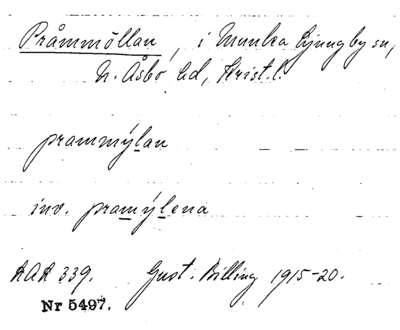 Pråmmöllan, i Munka Ljungby sn,
N. Åsbo hd, Krist. l.
prammýlan
inv. pramýlena
RAÄ 339. Gust. Billing 1915-20.
Nr 5497.